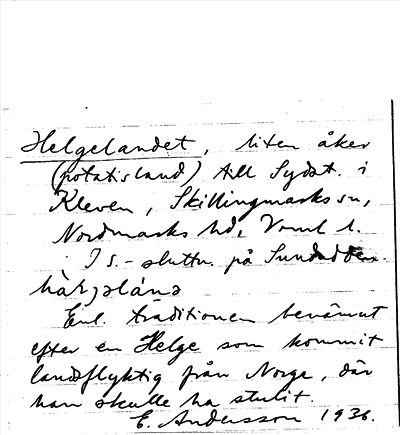 Helgelandet, liten åker
(potatisland) till Sydst. i
Kleven, Skillingmarks sn,
Nordmarks hd, Vrml l.
I s.-sluttn. på
Enl. traditionen benämnt
efter en Helge som kommit
landsflyktig från Norge, där
han skulle ha stulit.
E. Andersson 1936.